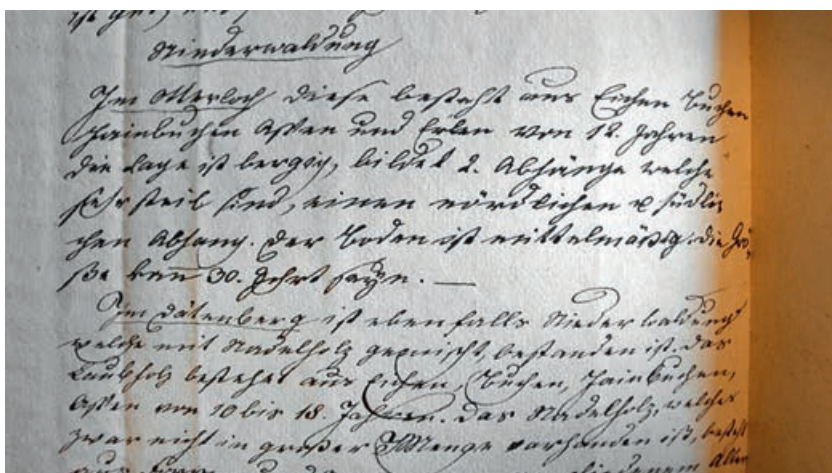 ist gut, und
Niederwaldung
Im Otterloch diese besteht aus Eichen Buchen
Hainbuchen Assen und Erlen von 18. Jahren
die Lage ist bergig, bildet 2. Abhänge welche
sehr steil sind, einen nördlichen u südli
chen Abhang. Der Boden ist mittelmäßig. die Grö
ße kann 30. seyn. —
Im Dätenberg ist ebenfalls Niederwaldung
welche mit Nadelholz gemischt, bestanden ist. Das
Laubholz bestehet aus Eichen, Buchen, Hainbuchen,
Assen von 10 bis 18. Jahren. Das Nadelholz, welches
zwar nicht in großer Menge vorhanden ist, besteht
aus allen